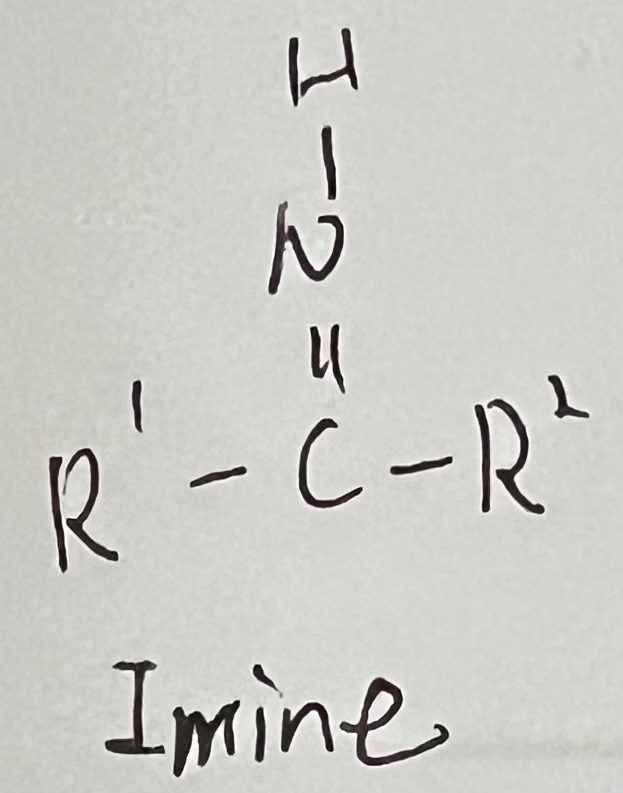 H
|
N
||
R¹ - C - R²
Imine